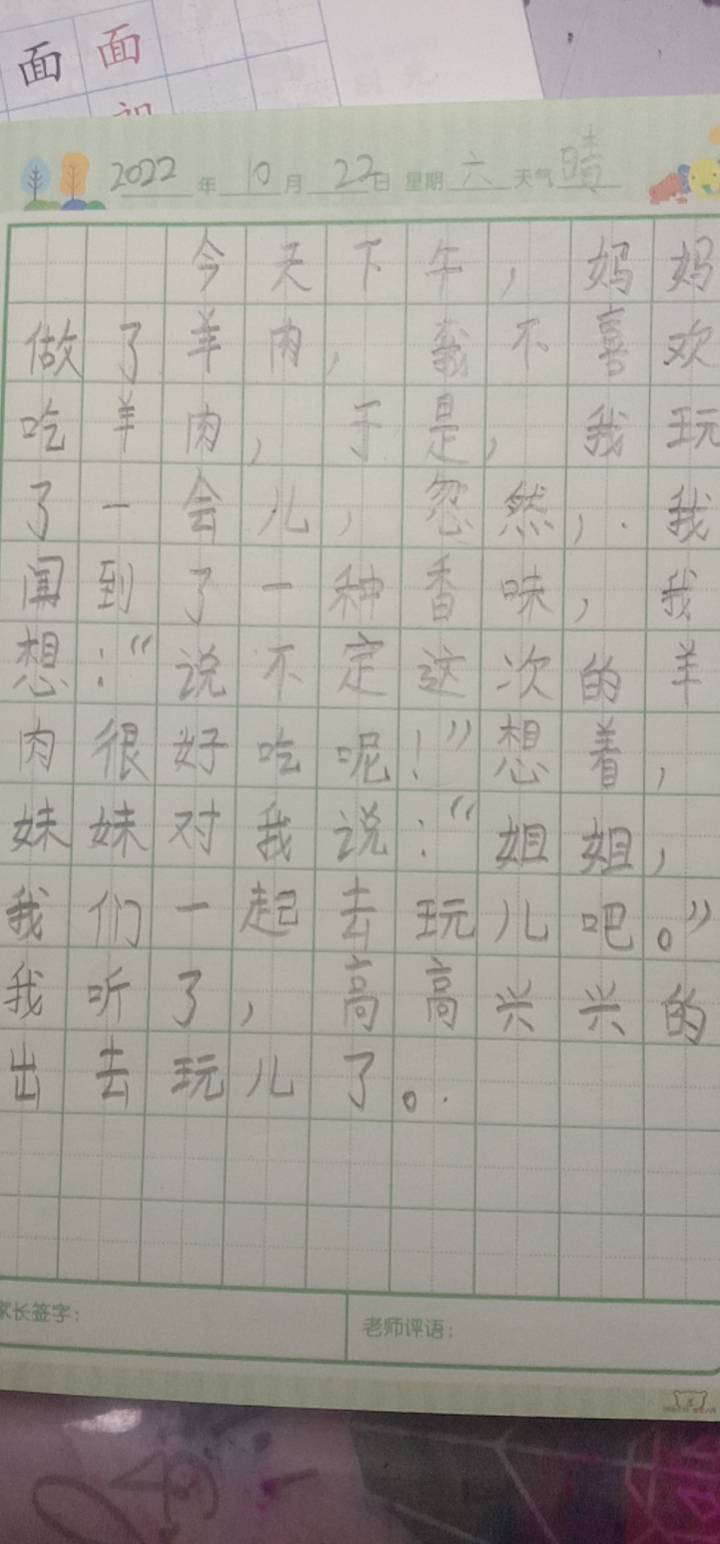 面 面
2022 年 10 月 22 日 星期 六 天气 晴
今天下午，妈妈
做了羊肉，我不喜欢
吃羊肉，于是，我玩
了一会儿，忽然，我
闻到了一种香味，我
想：“说不定这次的羊
肉很好吃呢！”想着，
妹妹对我说：“姐姐，
我们一起去玩儿吧。”
我听了，高高兴兴的
出去玩儿了。
家长签字：
老师评语：